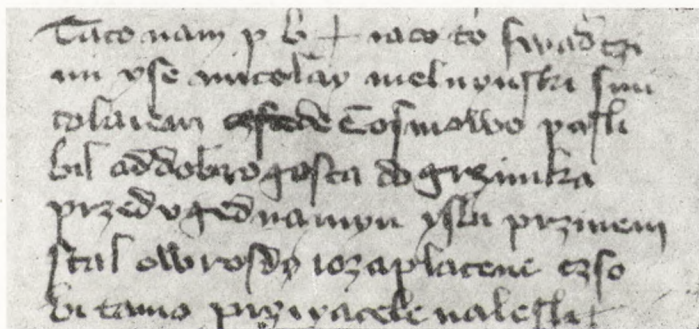 Taco nam p b + iaco to swadczi
mi yse micolay melnynski smi
colaiem Cosmowo pasli
bil addobrogosta do grzimka
przedugednamyn yslu przinem
stal owrosdo iozaplacene czso
bi tamo przyiacele nalesli